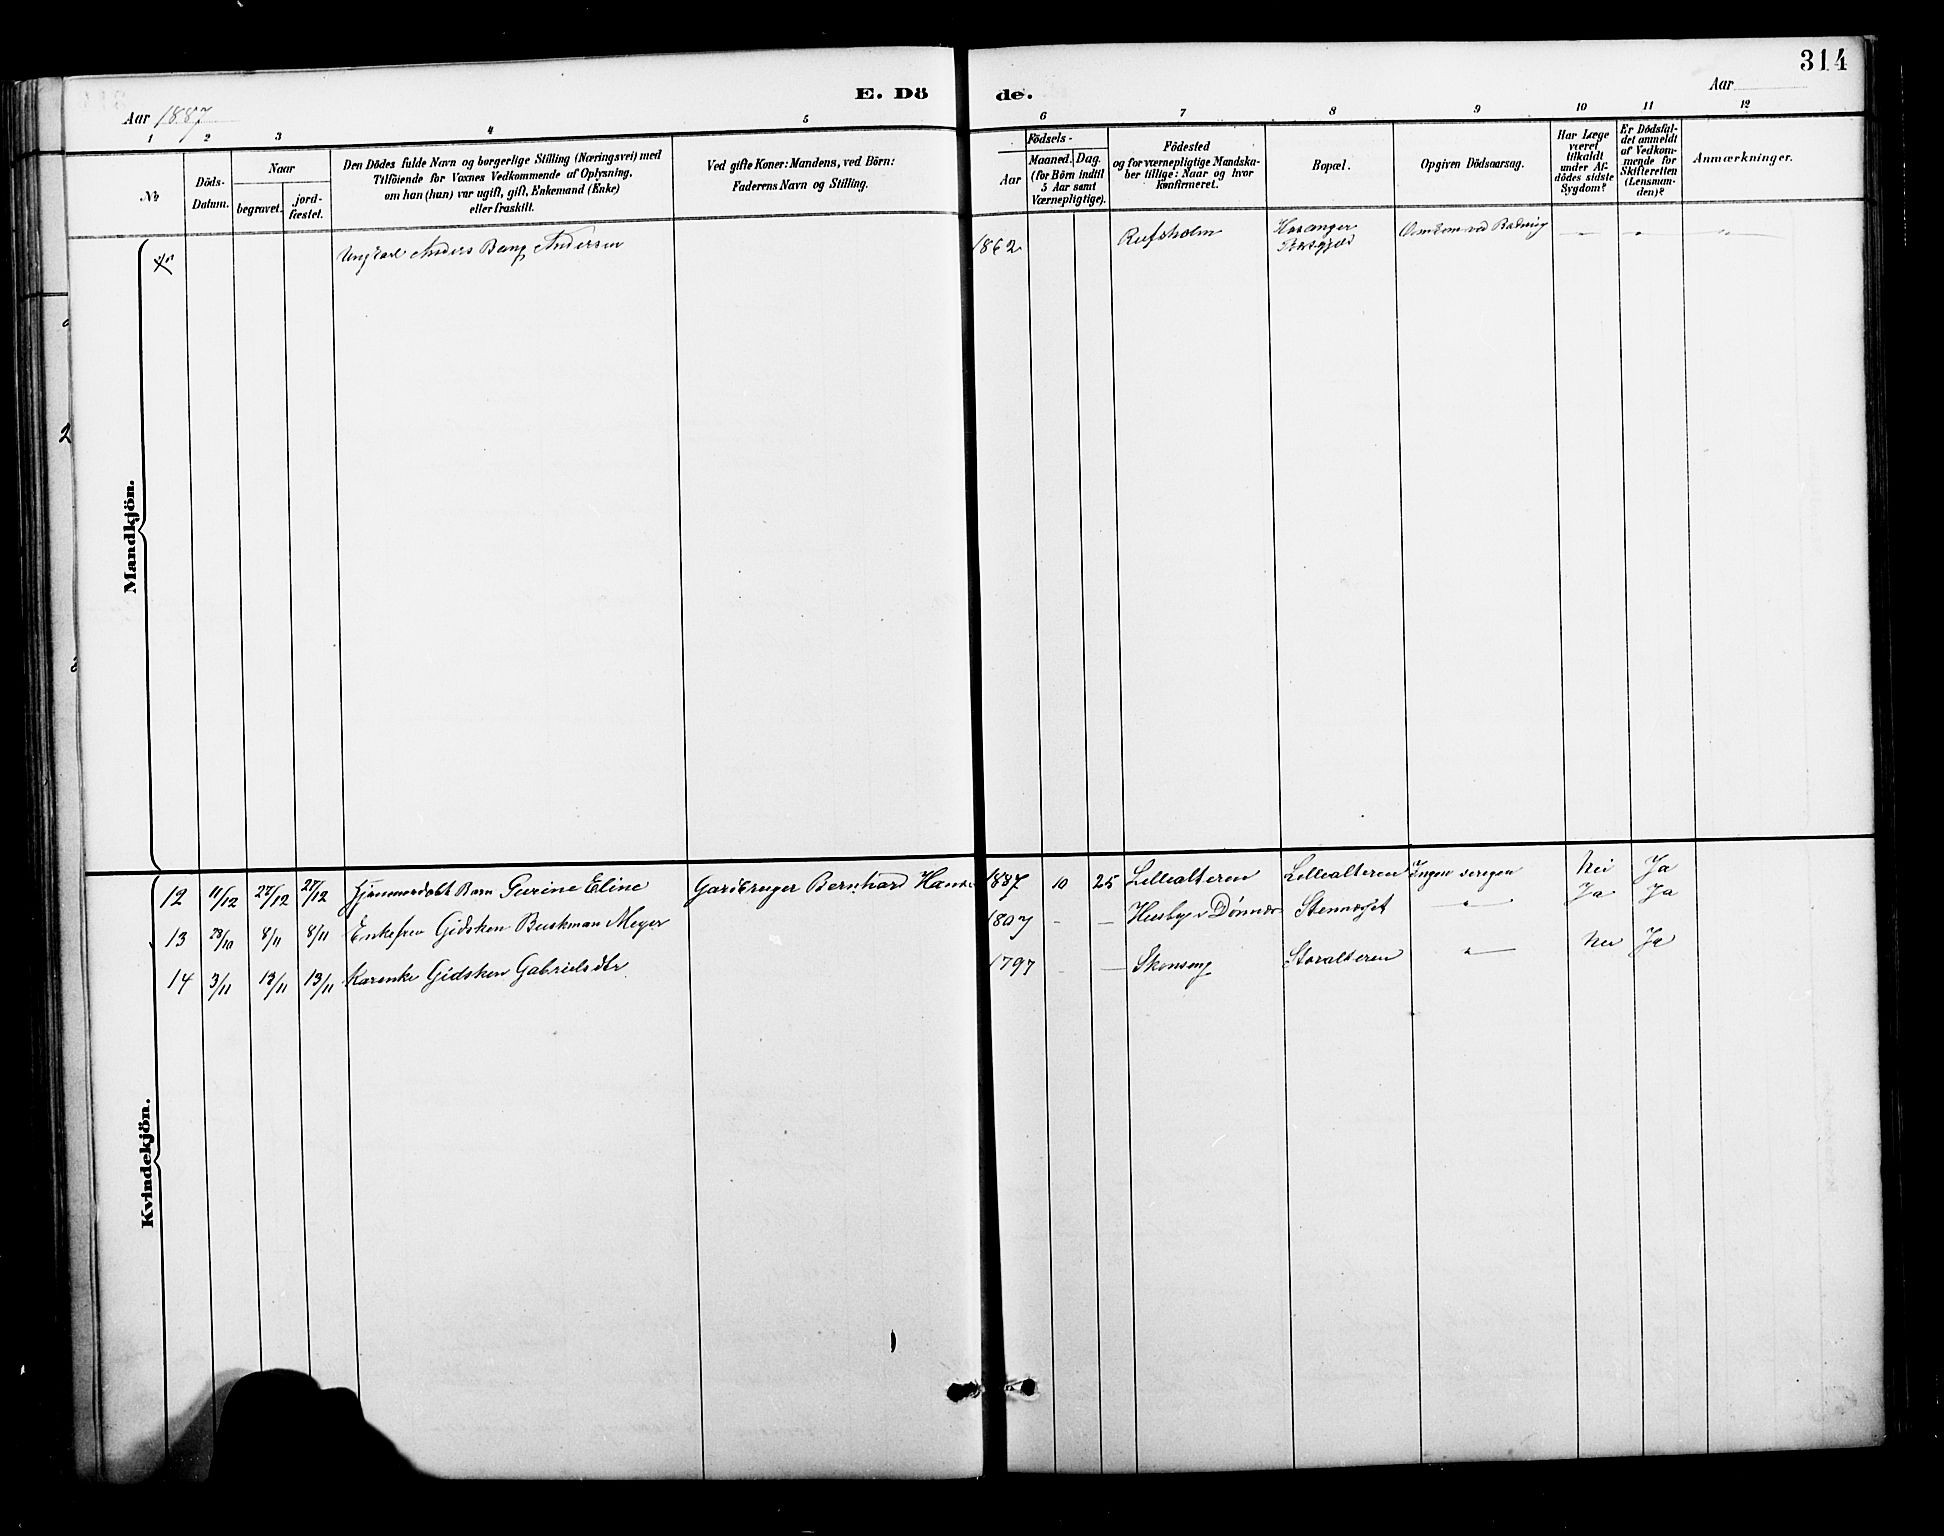 314
E. Dö de.
Aar 1887
Aar
1 2 3 4 5 6 7 8 9 10 11 12
No
Döds-
Datum.
Naar
begravet.
jord-
fæstet.
Den Dödes fulde Navn og borgerlige Stilling (Næringsvei) med
Tilföiende for Voxnes Vedkommende af Oplysning,
om han (hun) var ugift, gift, Enkemand (Enke)
eller fraskilt.
Ved gifte Koner: Mandens, ved Börn:
Faderens Navn og Stilling.
Födsels-
Aar
Maaned. Dag.
(for Börn indtil
5 Aar samt
Værnepligtige).
Födested
og for værnepligtige Mandska-
ber tillige: Naar og hvor
konfirmeret.
Bopæl.
Opgiven Dödsaarsag.
Har Læge
været
tilkaldt
under Af-
dödes sidste
Sygdom?
Er Dödsfal-
det anmeldt
af Vedkom-
mende for
Skifteretten
(Lensman-
den)?
Anmærkninger.
Mandkjön.
Ungkarl Anders Bang Andersen 1862 Rufsholm
Omkom ved
Kvindekjön.
12 11/12 27/12 27/12 Hjemmedøbt Barn Gurine Eline Gardbruger Bernhard Hans 1887 10 25 Lillealteren Lillealteren Ingen Nei Ja
13 28/10 8/11 8/11 Enkefru Gidsken Buskman Meyer 1807 - - Husby v Dønnæs Stennæset " Ja Ja
14 3/11 13/11 13/11 Karenke Gidsken Gabrielsdtr 1797 - - Skonseng Storalteren " Nei Ja